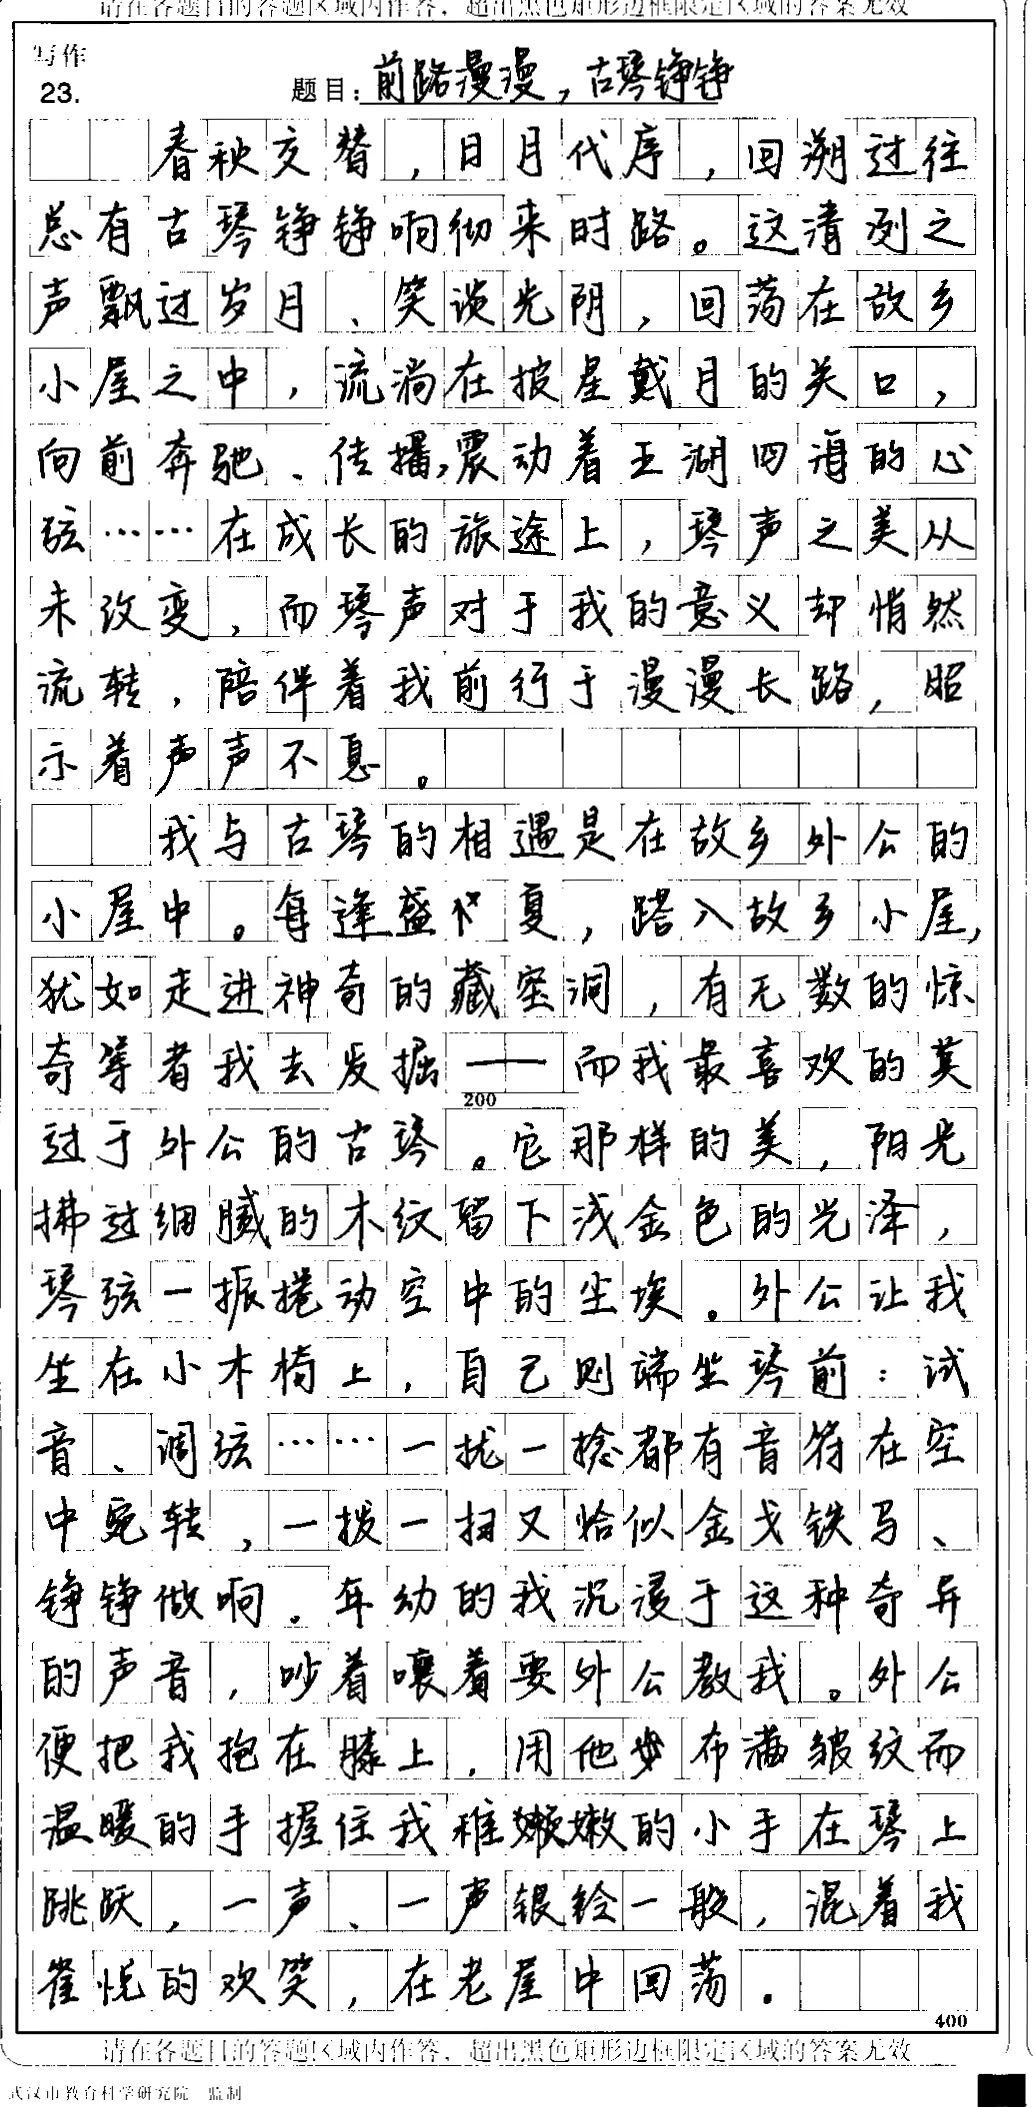 请在各题目的答题区域内作答，超出黑色矩形边框限定区域的答案无效
写作
23. 题目：前路漫漫，古琴铮铮
春秋交替，日月代序，回溯过往
总有古琴铮铮响彻来时路。这清冽之
声飘过岁月、笑谈光阴，回荡在故乡
小屋之中，流淌在披星戴月的关口，
向前奔驰、传播，震动着五湖四海的心
弦……在成长的旅途上，琴声之美从
未改变，而琴声对于我的意义却悄然
流转，陪伴着我前行于漫漫长路，昭
示着声声不息。
我与古琴的相遇是在故乡外公的
小屋中。每逢盛夏，踏入故乡小屋，
犹如走进神奇的藏宝洞，有无数的惊
奇等着我去发掘——而我最喜欢的莫
200
过于外公的古琴。它那样的美，阳光
拂过细腻的木纹留下浅金色的光泽，
琴弦一振捲动空中的尘埃。外公让我
坐在小木椅上，自己则端坐琴前：试
音、调弦……一拢一捻都有音符在空
中宛转，一拨一扫又恰似金戈铁马、
铮铮做响。年幼的我沉浸于这种奇异
的声音，吵着嚷着要外公教我。外公
便把我抱在膝上，用他布满皱纹而
温暖的手握住我稚嫩嫩的小手在琴上
跳跃，一声、一声银铃一般，混着我
雀悦的欢笑，在老屋中回荡。
400
请在各题目的答题区域内作答，超出黑色矩形边框限定区域的答案无效
武汉市教育科学研究院 监制